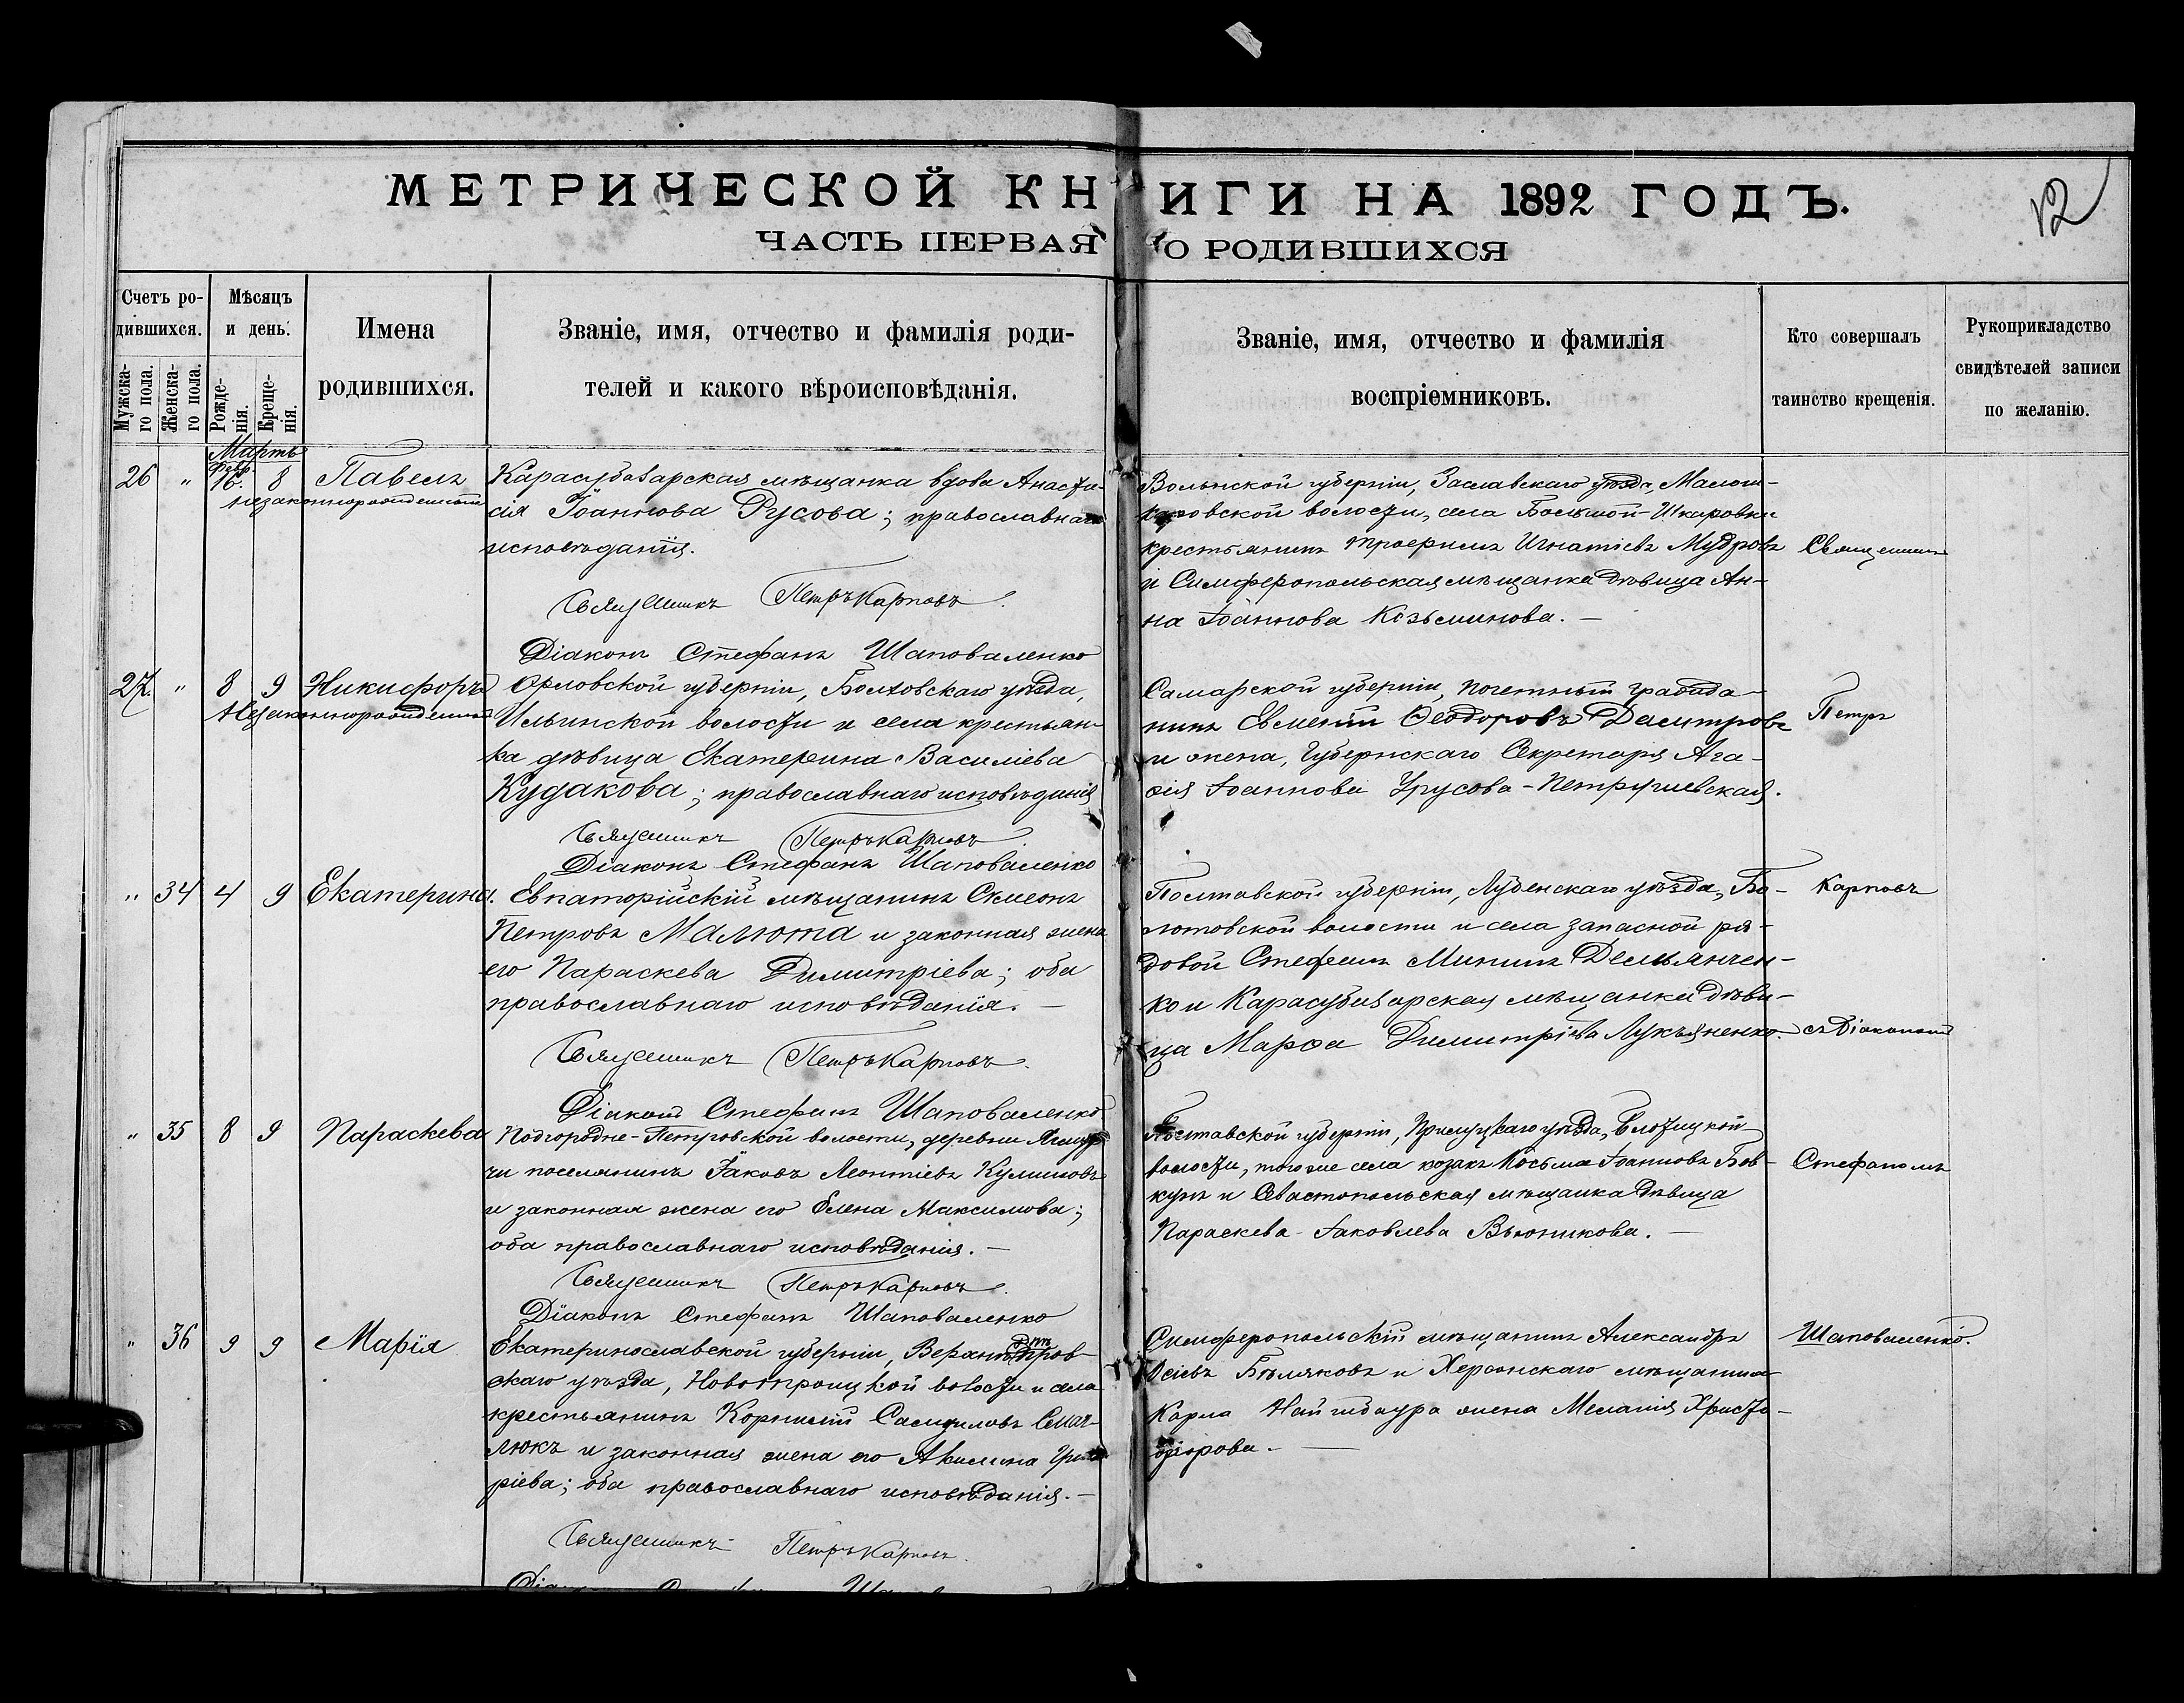 МЕТРИЧЕСКОЙ КНИГИ НА 1892 ГОДЪ.
12
ЧАСТЬ ПЕРВАЯ О РОДИВШИХСЯ
Счетъ ро-
дившихся.
Мужска-
го пола.
Женска-
го пола.
Мѣсяцъ
и день.
Рожде-
нія.
Креще-
нія.
Имена
родившихся.
Званіе, имя, отчество и фамилія роди-
телей и какого вѣроисповѣданія.
Званіе, имя, отчество и фамилія
воспріемниковъ.
Кто совершалъ
таинство крещенія.
Рукоприкладство
свидѣтелей записи
по желанію.
Мартъ
Февр.
26 " 16. 8 Павелъ
незаконнорожденный
Карасубазарская мѣщанка вдова Анаста-
сія Іоаннова Русова; православнаго
исповѣданія.
Священникъ Петръ Карповъ.
Діаконъ Стефанъ Шаповаленко
Волынской губерніи, Заславскаго уѣзда, Малош-
каровской волости, села Большой-Шкаровки
крестьянинъ Игнатіевъ Мудровъ
и Симферопольская мѣщанка дѣвица Ан-
на Іоаннова Козьминова. —
Священникъ
27. " 8 9 Никифоръ
Незаконнорожденный
Орловской губерніи, Болховскаго уѣзда,
Ильинской волости и села крестьян-
ка дѣвица Екатерина Василіева
Кудакова; православнаго исповѣданія
Священникъ Петръ Карповъ.
Діаконъ Стефанъ Шаповаленко
Самарской губерніи, почетный гражда-
нинъ Евменій Ѳеодоровъ Дмитровъ
и жена, Губернскаго Секретаря Ага-
ѳія Іоаннова Урусова-Петрушевская.
Петръ
" 34 4 9 Екатерина.
Евпаторійскій мѣщанинъ Симеонъ
Петровъ Малюта и законная жена
его Параскева Димитріева; оба
православнаго исповѣданія. —
Священникъ Петръ Карповъ.
Діаконъ Стефанъ Шаповаленко
Полтавской губерніи, Лубенскаго уѣзда, Бо-
лотовской волости и села запасной ря-
довой Стефанъ Мининъ Демьянчен-
ко и Карасубазарская мѣщанка дѣви-
ца Марѳа Димитріева Лукьяненко.
Карповъ
съ Діакономъ
" 35 8 9 Параскева
Подгородне-Петровской волости, деревни
поселянинъ Іаковъ Леонтіевъ Куликовъ
и законная жена его Елена Максимова;
оба православнаго исповѣданія. —
Священникъ Петръ Карповъ.
Діаконъ Стефанъ Шаповаленко
Полтавской губерніи, Прилуцкаго уѣзда,
волости, того же села козакъ Косьма Іоанновъ Бов-
кунъ и Севастопольская мѣщанка дѣвица
Параскева Іаковлева Вьюникова. —
Стефаномъ
" 36 9 9 Марія
Екатеринославской губерніи, Верхнеднѣпров-
скаго уѣзда, Новотроицкой волости и села
крестьянинъ Корнилій Самуиловъ Смаг-
люкъ и законная жена его Акилина Григо-
ріева; оба православнаго исповѣданія. —
Священникъ Петръ Карповъ.
Симферопольскій мѣщанинъ Александръ
Осіевъ Бѣляковъ и Херсонскаго мѣщанина
Карла жена Меланія Христо-
форова. —
Шаповаленко.